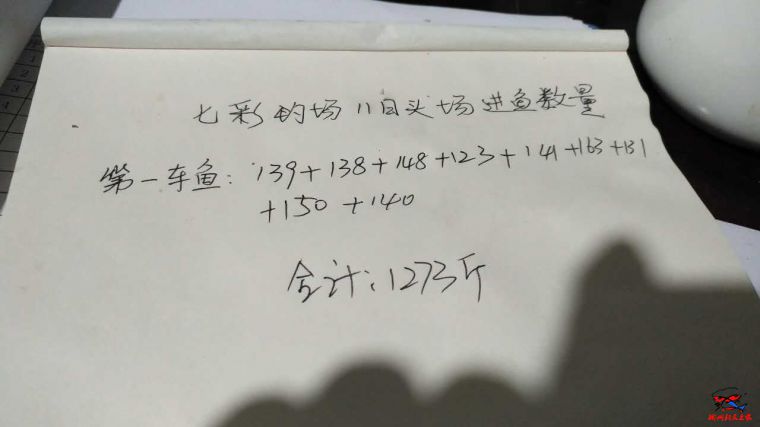 七彩钓场11日头场进鱼数量
第一车鱼：139+138+148+123+141+163+131
+150+140
合计：1273斤